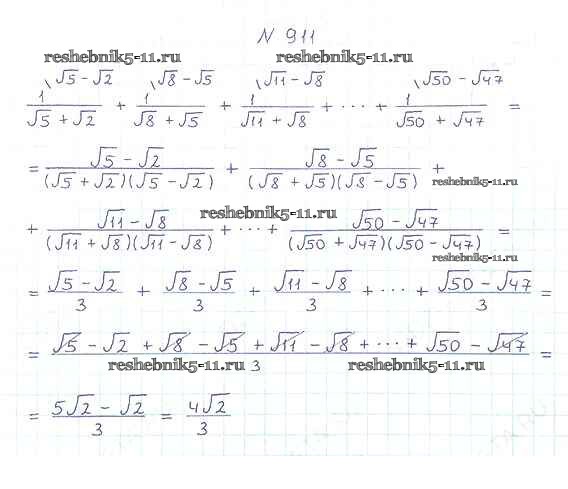 N 911
reshebnik5-11.ru reshebnik5-11.ru
\√5 - √2 \√8 - √5 \√11 - √8 \√50 - √47
1/(√5 + √2) + 1/(√8 + √5) + 1/(√11 + √8) + ... + 1/(√50 + √47) =
= (√5 - √2)/((√5 + √2)(√5 - √2)) + (√8 - √5)/((√8 + √5)(√8 - √5)) +
reshebnik5-11.ru
reshebnik5-11.ru
+ (√11 - √8)/((√11 + √8)(√11 - √8)) + ... + (√50 - √47)/((√50 + √47)(√50 - √47)) =
reshebnik5-11.ru
= (√5 - √2)/3 + (√8 - √5)/3 + (√11 - √8)/3 + ... + (√50 - √47)/3 =
= (√5 - √2 + √8 - √5 + √11 - √8 + ... + √50 - √47)/3 =
reshebnik5-11.ru reshebnik5-11.ru
= (5√2 - √2)/3 = 4√2/3